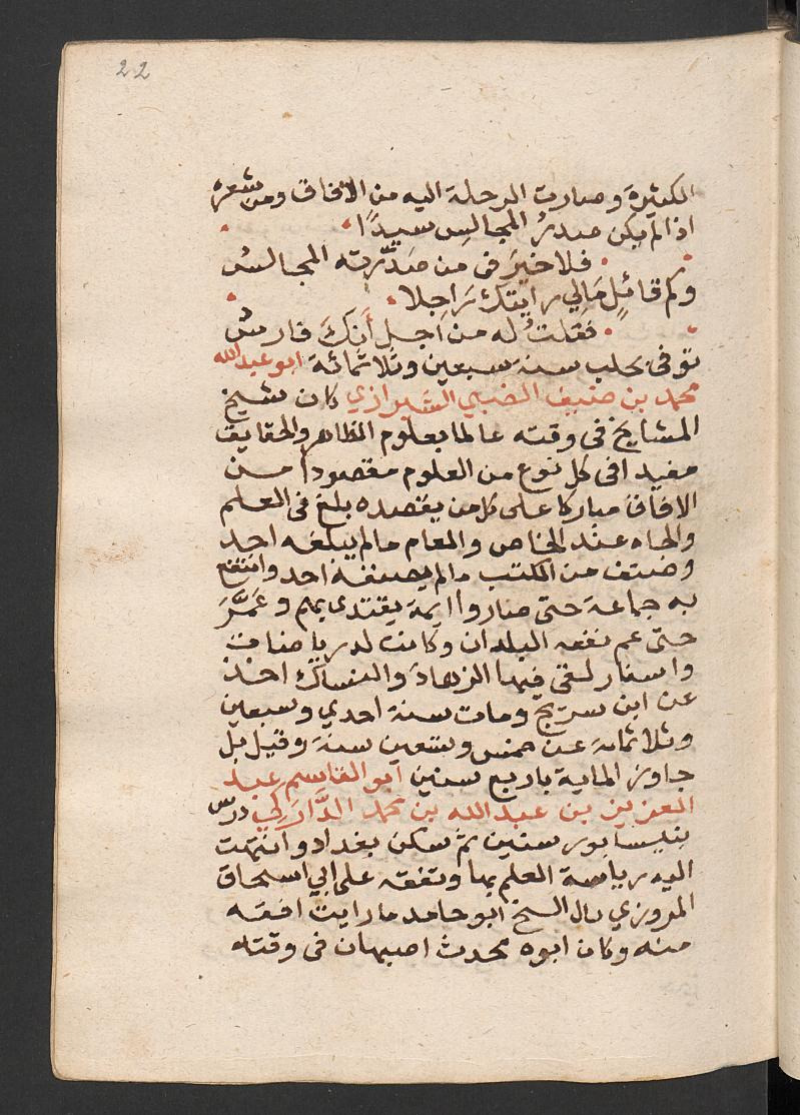 22
الكثيرة وصارت الرحلة اليه من الافاق ومن شعره
اذا لم يكن صدرُ المجالِس سيدًا
فلا خيرَ فى من صَدَّرته المجالسُ
وكم قائلٍ مَالِي رايتكَ رَاجِلا
فقلتُ له من اَجل أَنكَ فارسُ
توفى بحلب سنة سبعين وثلاثمائة ابو عبدالله
محمد بن خفيف الضبي الشيرازي كان شيخ
المشايخ فى وقته عالما بعلوم الظاهر والحقايق
مفيدا فى كل نوع من العلوم مقصودا من
الافاق مباركا على كل من يقصده بلغ فى العلم
والجاه عند الخاص والعام ما لم يبلغه احد
وصنف من الكتب ما لم يصنفه احد وانتفع
به جماعة حتى صاروا ايمة يقتدى بهم وعَمَّرَ
حتى عم نفعه البلدان وكانت له رياضات
واسفار لقى فيها الزهاد والنساك اخذ
عن ابن سريج ومات سنة احدي وسبعين
وثلاثمائه عن خمس وتسعين سنة وقيل بل
جاوز الماية باربع سنين ابو القاسم عبد
العزيز بن عبدالله بن محمد الدَّارَكي درس
بنيسابور سنين ثم سكن بغداد وانتهت
اليه رياسة العلم بها وتفقه على ابي اسحاق
المروزي قال الشيخ ابو حامد ما رايت افقه
منه وكان ابوه محدث اصبهان فى وقته